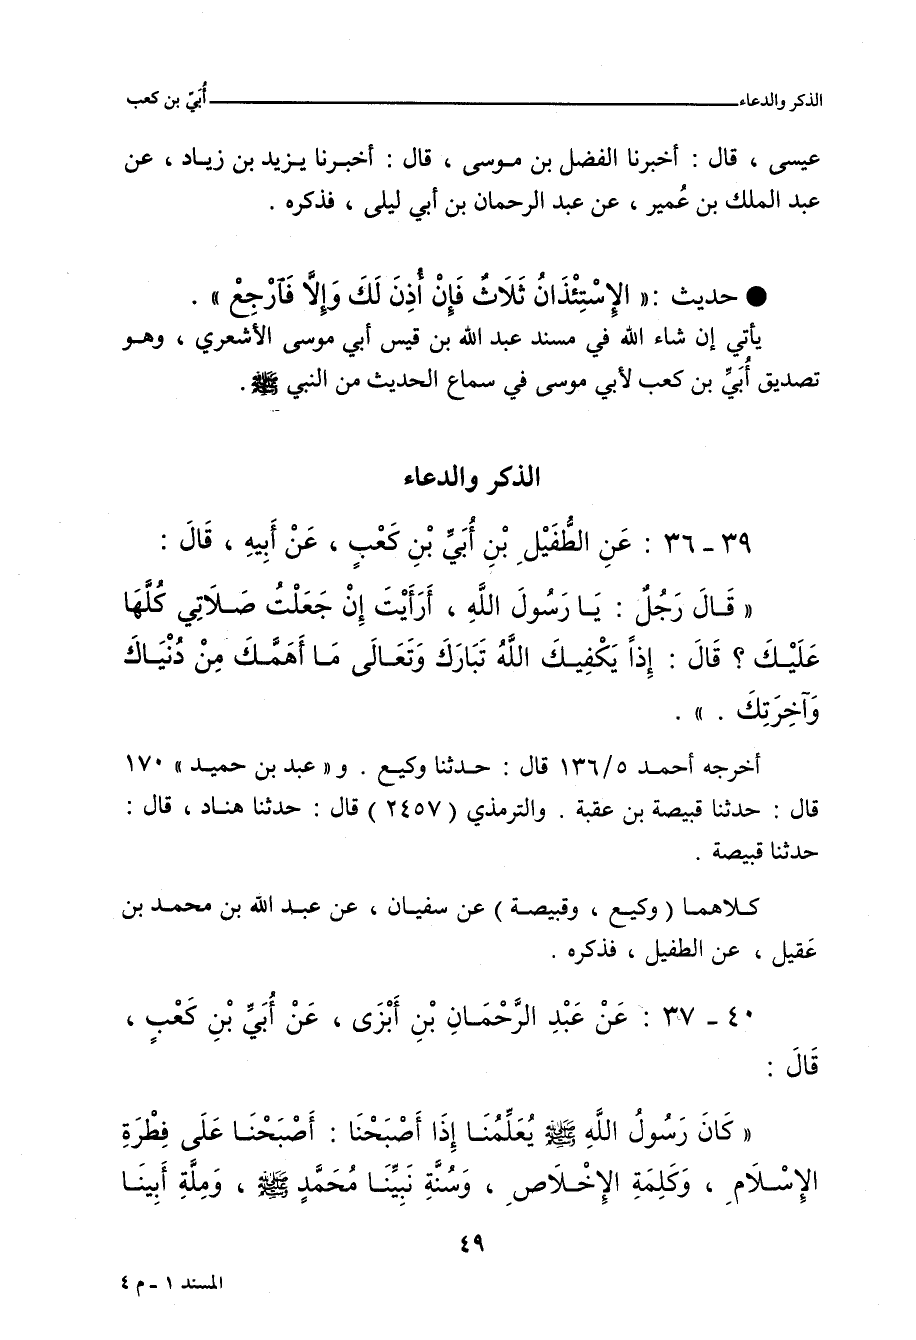 الذكر والدعاء ـــــــــــــــــــــ أُبَيّ بن كعب
عيسى ، قال : أخبرنا الفضل بن موسى ، قال : أخبرنا يزيد بن زياد ، عن
عبد الملك بن عُمير ، عن عبد الرحمان بن أبي ليلى ، فذكره .
● حديث : « الإِسْتِئْذَانُ ثَلَاثٌ فَإِنْ أُذِنَ لَكَ وَإِلَّا فَآرْجِعْ » .
يأتي إن شاء الله في مسند عبد الله بن قيس أبي موسى الأشعري ، وهو
تصديق أُبَيِّ بن كعب لأبي موسى في سماع الحديث من النبي ﷺ .
الذكر والدعاء
٣٩ - ٣٦ : عَنِ الطُّفَيْلِ بْنِ أُبَيِّ بْنِ كَعْبٍ ، عَنْ أَبِيهِ ، قَالَ :
« قَالَ رَجُلٌ : يَا رَسُولَ اللَّهِ ، أَرَأَيْتَ إِنْ جَعَلْتُ صَلَاتِي كُلَّهَا
عَلَيْكَ ؟ قَالَ : إِذاً يَكْفِيكَ اللَّهُ تَبَارَكَ وَتَعَالَى مَا أَهَمَّكَ مِنْ دُنْيَاكَ
وَآخِرَتِكَ . » .
أخرجه أحمد ١٣٦/٥ قال : حدثنا وكيع . و« عبد بن حميد » ١٧٠
قال : حدثنا قبيصة بن عقبة . والترمذي ( ٢٤٥٧ ) قال : حدثنا هناد ، قال :
حدثنا قبيصة .
كلاهما ( وكيع ، وقبيصة ) عن سفيان ، عن عبد الله بن محمد بن
عَقيل ، عن الطفيل ، فذكره .
٤٠ - ٣٧ : عَنْ عَبْدِ الرَّحْمَانِ بْنِ أَبْزَى ، عَنْ أُبَيِّ بْنِ كَعْبٍ ،
قَالَ :
« كَانَ رَسُولُ اللَّهِ ﷺ يُعَلِّمُنَا إِذَا أَصْبَحْنَا : أَصْبَحْنَا عَلَى فِطْرَةِ
الإِسْلَامِ ، وَكَلِمَةِ الإِخْلَاصِ ، وَسُنَّةِ نَبِيِّنَا مُحَمَّدٍ ﷺ ، وَمِلَّةِ أَبِينَا
٤٩
المسند ١ - م ٤